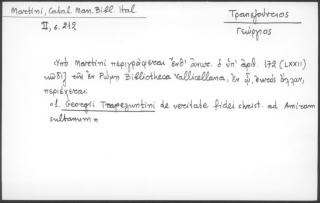 Martini, Catal. Man. Bibl. Ital.
II, σ. 212
Τραπεζούντιος
Γεώργιος
Ὑπὸ Martini περιγράφεται ἐνθ' ἀνωτ. ὁ ὑπ' ἀρθ. 172 (LXXII)
κῶδιξ τῆς ἐν Ρώμῃ Bibliotheca Vallicellana, ἐν ᾧ, ἐκτὸς ἄλλων,
περιέχεται:
"1. Georgii Trapezuntini de veritate fidei christ. ad Amiram
sultanum"